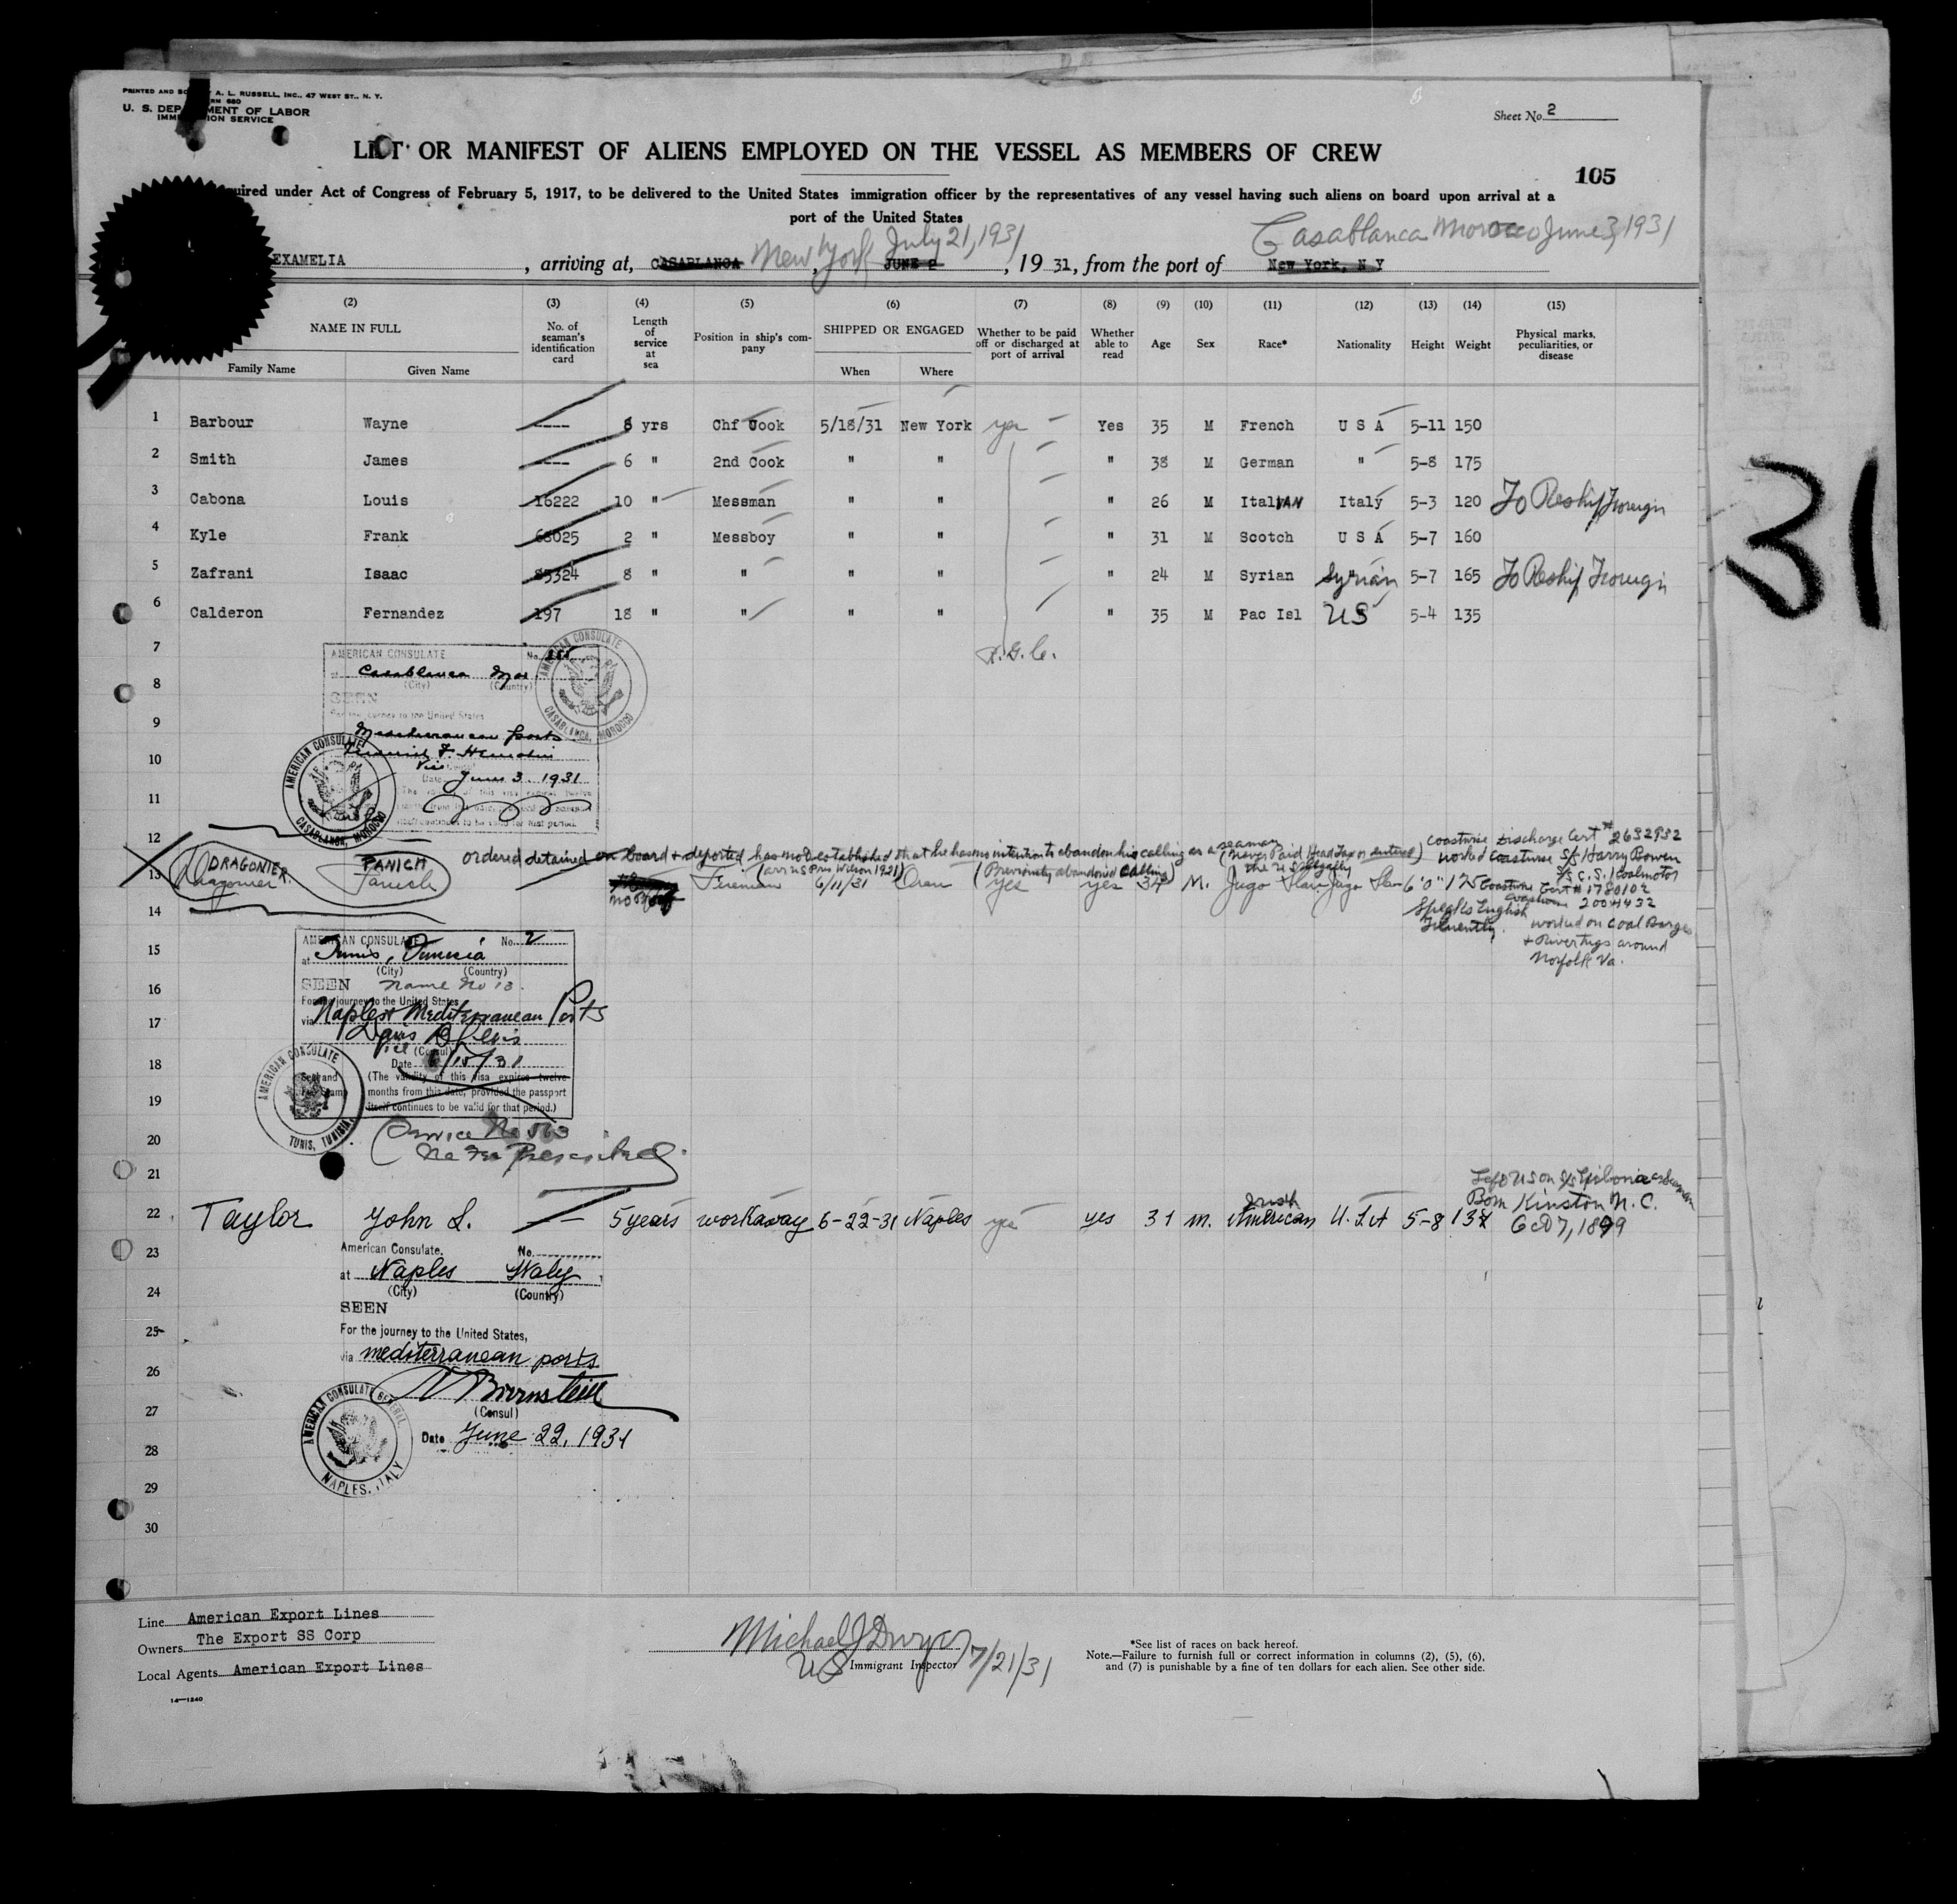 PRINTED AND SO A. L. RUSSELL, INC., 47 WEST ST., N. Y.
RM 680
U. S. DEP MENT OF LABOR
IMM ION SERVICE
Sheet No. 2
LIST OR MANIFEST OF ALIENS EMPLOYED ON THE VESSEL AS MEMBERS OF CREW
105
quired under Act of Congress of February 5, 1917, to be delivered to the United States immigration officer by the representatives of any vessel having such aliens on board upon arrival at a
port of the United States
New York July 21, 1931 Casablanca Morocco June 3, 1931
EXAMELIA, arriving at, CASABLANCA, JUNE 2, 1931, from the port of New York, N Y
(2) (3) (4) (5) (6) (7) (8) (9) (10) (11) (12) (13) (14) (15)
NAME IN FULL No. of seaman's identification card Length of service at sea Position in ship's company SHIPPED OR ENGAGED Whether to be paid off or discharged at port of arrival Whether able to read Age Sex Race* Nationality Height Weight Physical marks, peculiarities, or disease
Family Name Given Name When Where
1 Barbour Wayne ---- 8 yrs Chf Cook 5/18/31 New York yes Yes 35 M French U S A 5-11 150
2 Smith James ---- 6 " 2nd Cook " " " 38 M German " 5-8 175
3 Cabona Louis 16222 10 " Messman " " " 26 M Italian Italy 5-3 120 To Reship Foreign
4 Kyle Frank 68025 2 " Messboy " " " 31 M Scotch U S A 5-7 160
5 Zafrani Isaac 85324 8 " " " " " 24 M Syrian Syrian 5-7 165 To Reship Foreign
6 Calderon Fernandez 197 18 " " " " " 35 M Pac Isl US 5-4 135
31
7
8
9
10
11
12
AMERICAN CONSULATE No.
at Casablanca Mor
(City) (Country)
SEEN
For the journey to the United States
Mediterranean ports
Vice
Date June 3. 1931
AMERICAN CONSULATE
CASABLANCA, MOROCCO
AMERICAN CONSULATE
CASABLANCA, MOROCCO
ordered detained on board & deported has not established that he has no intention to abandon his calling as a seaman
(arr U S Pres Wilson 1921) (Previously abandoned calling)
(never Paid Head Tax or entered the U S legally)
13 DRAGONIER PANICH
Dragonier Panich Fireman 6/11/31 Oran yes yes 34 M. Jugo Slav Jugo Slav 6'0" 175
Coastwise Discharge Cert # 2632932
worked Coastwise S/S Harry Bowen
S/S C. S. 1 Coalmotor
Coastwise Cert # 1780102
Coastwise 2004432
Speaks English
Fluently.
worked on Coal Barges
& River tugs around
Norfolk Va.
14
15
16
17
18
19
20
21
AMERICAN CONSULATE No. 2
at Tunis, Tunisia
(City) (Country)
SEEN Name No 13.
For the journey to the United States
via Naples & Mediterranean Ports
Vice (Consul)
Date 6/15/31
Seal and
Fee Stamp
(The validity of this visa expires twelve
months from this date, provided the passport
itself continues to be valid for that period.)
AMERICAN CONSULATE
TUNIS, TUNISIA
Service No 563
No Fee Prescribed
22 Taylor John L. -- 5 years workaway 6-22-31 Naples yes yes 31 m. Irish American U.S.A 5-8 137
Born Kinston N. C.
Oct 7, 1899
23
24
25
26
27
28
29
30
American Consulate. No.
at Naples Italy
(City) (Country)
SEEN
For the journey to the United States,
via mediterranean ports
(Consul)
Date June 22, 1931
AMERICAN CONSULATE GENERAL
NAPLES, ITALY
Line American Export Lines
Owners The Export SS Corp
Local Agents American Export Lines
14—1240
Michael J Dwyer
US Immigrant Inspector 7/21/31
*See list of races on back hereof.
Note.—Failure to furnish full or correct information in columns (2), (5), (6),
and (7) is punishable by a fine of ten dollars for each alien. See other side.